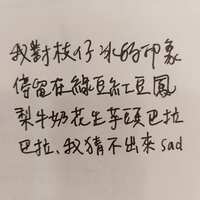 我對枝仔冰的印象
停留在綠豆紅豆鳳
梨牛奶花生芋頭巴拉
巴拉、我猜不出來 sad